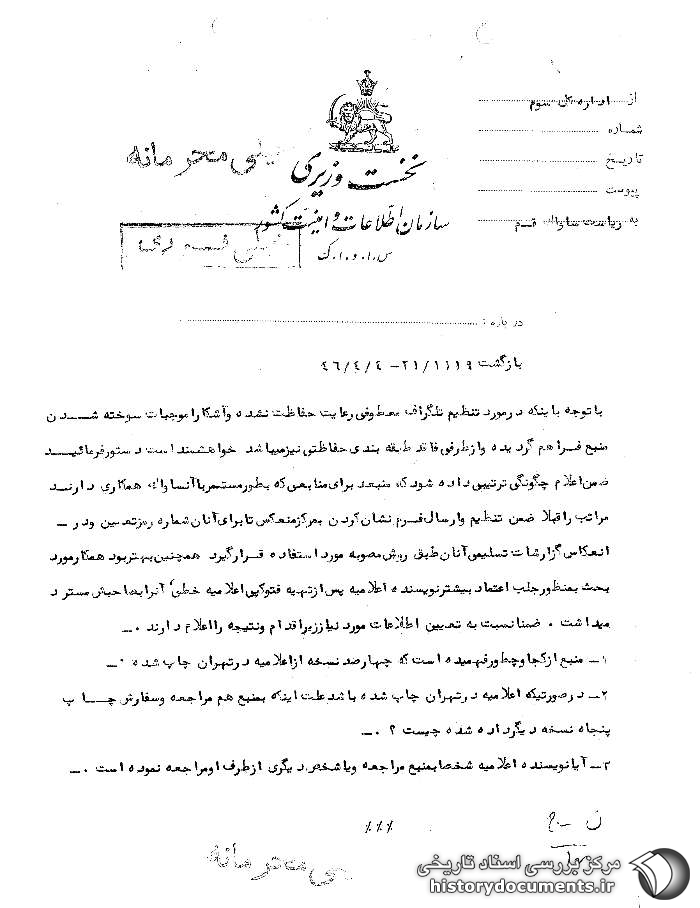 از اداره کل سوم
شماره
تاریخ
پیوست
به ریاست ساواک قم
خیلی محرمانه
نخست وزیری
سازمان اطلاعات و امنیت کشور
س.ا.و.ا.ک
خیلی فوری
درباره :
بازگشت ٢١/١١١٩ – ٤٦/٤/٤
با توجه باینکه در مورد تنظیم تلگراف معطوفی رعایت حفاظت نشده و آشکارا موجبات سوخته شدن
منبع فراهم گردیده و از طرفی فاقد طبقه بندی حفاظتی نیز میباشد خواهشمند است دستور فرمائید
ضمن اعلام چگونگی ترتیبی داده شود که منبعد برای منابعی که بطور مستمر با آن ساواک همکاری دارند
مراتب را قبلا ضمن تنظیم و ارسال فرم نشان کردن بمرکز منعکس تا برای آنان شماره رمز تعیین و در –
انعکاس گزارشات تسلیمی آنان طبق روش مصوبه مورد استفاده قرار گیرد همچنین بهتر بود همکار مورد
بحث بمنظور جلب اعتماد بیشتر نویسنده اعلامیه پس از تهیه فتوکپی اعلامیه خطی آنرا بصاحبش مسترد
میداشت ٠ ضمنا نسبت به تعیین اطلاعات مورد نیاز زیر اقدام و نتیجه را اعلام دارند ٠–
١– منبع از کجا و چطور فهمیده است که چهارصد نسخه از اعلامیه در تهران چاپ شده ٠–
٢– در صورتیکه اعلامیه در تهران چاپ شده باشد علت اینکه بمنبع هم مراجعه و سفارش چاپ
پنجاه نسخه دیگر داده شده چیست ؟ ٠–
٣– آیا نویسنده اعلامیه شخصا بمنبع مراجعه و یا شخص دیگری از طرف او مراجعه نموده است ٠–
٪٪٪
خیلی محرمانه
مرکز بررسی اسناد تاریخی
historydocuments.ir